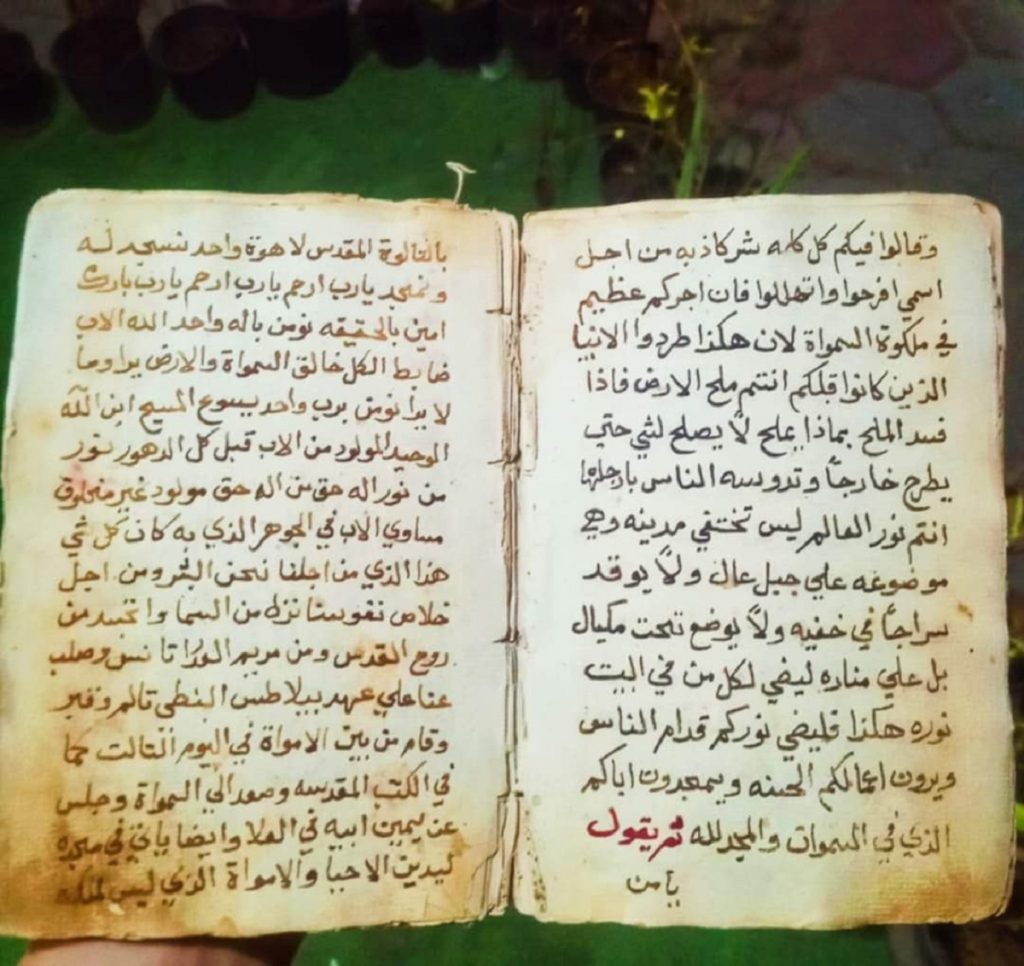 وقالوا فيكم كل كلمه شر كاذبه من اجل
اسمي افرحوا واتهللوا فان اجركم عظيم
في ملكوة السمواة لان هكذا طردوا الانبيا
الذين كانوا قبلكم انتم ملح الارض فاذا
فسد الملح بماذا يملح لاً يصلح لشي حتي
يطرح خارجاً وتدوسه الناس بارجلها
انتم نور العالم ليس تختفي مدينه وهي
موضوعه علي جبل عال ولاً يوقد
سراجاً في خفيه ولاً يوضع تحت مكيال
بل علي مناره ليضي لكل من في البيت
نوره هكذا فليضي نوركم قدام الناس
ويرون اعمالكم الحسنه ويمجدون اباكم
الذي في السموات والمجد لله ثم يقول
يا من
بالتالوة المقدس لاهوة واحد نسجد له
ونمجد يارب ارحم يارب ارحم يارب بارك
امين بالحقيقه نومن باله واحد الله الاب
ضابط الكل خالق السمواة والارض يرا وما
لا يرا نومن برب واحد يسوع المسيح ابن الله
الوحيد المولود من الاب قبل كل الدهور نور
من نور اله حق من اله حق مولود غير مخلوق
مساوي الاب في الجوهر الذي به كان كل شي
هذا الذي من اجلنا نحن البشر ومن اجل
خلاص نفوسنا نزل من السما واتجسد من
روح القدس ومن مريم العذرا تانس وصلب
عنا علي عهد بيلاطس البنطي تالم وقبر
وقام من بين الامواة في اليوم التالت كما
في الكتب المقدسه وصعد الي السمواة وجلس
عن يمين ابيه في العلا وايضا ياتي في مجده
ليدين الاحيا والامواة الذي ليس لملكه